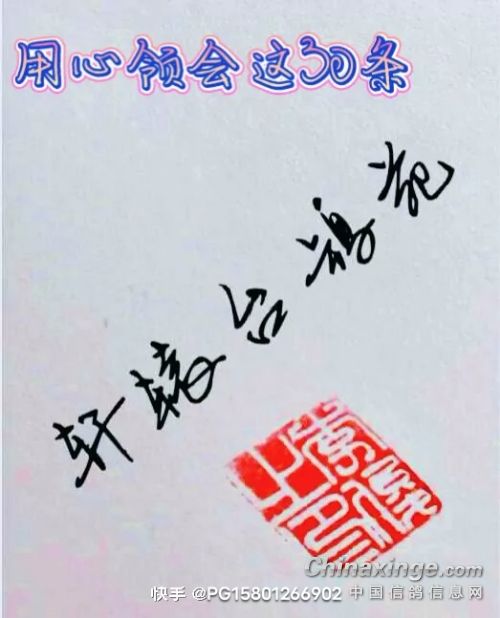 用心领会这30条
轩辕台鸽苑
Chinaxinge.com
快手 @PG15801266902 中国信鸽信息网